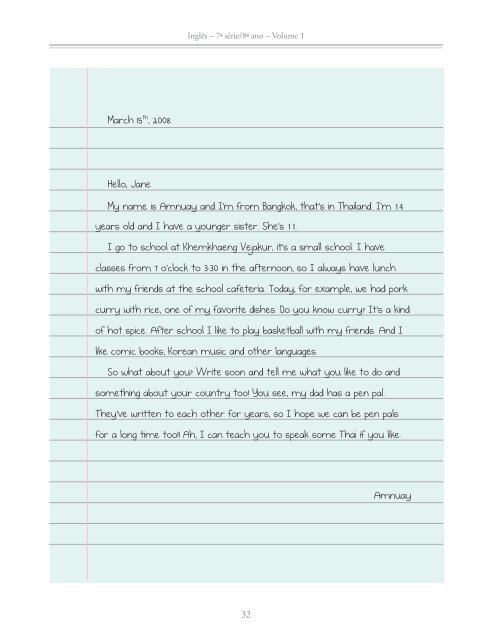 Inglês – 7ª série/8º ano – Volume 1
March 15th, 2008.
Hello, Jane
My name is Amnuay and I'm from Bangkok, that's in Thailand. I'm 14
years old and I have a younger sister. She's 11.
I go to school at Khemkhaeng Vejakur, it's a small school. I have
classes from 7 o'clock to 3:30 in the afternoon, so I always have lunch
with my friends at the school cafeteria. Today, for example, we had pork
curry with rice, one of my favorite dishes. Do you know curry? It's a kind
of hot spice. After school I like to play basketball with my friends. And I
like comic books, Korean music and other languages.
So what about you? Write soon and tell me what you like to do and
something about your country too! You see, my dad has a pen pal.
They've written to each other for years, so I hope we can be pen pals
for a long time too!! Ah, I can teach you to speak some Thai if you like.
Amnuay
32